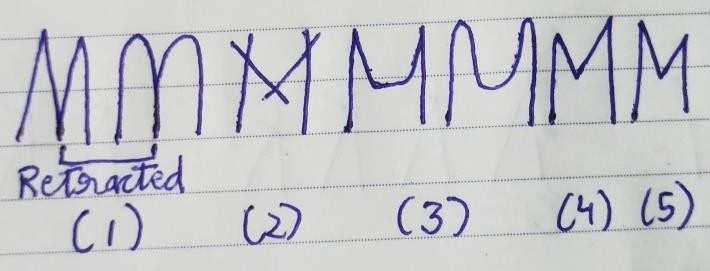 M M M M M M M
Retracted
(1) (2) (3) (4) (5)